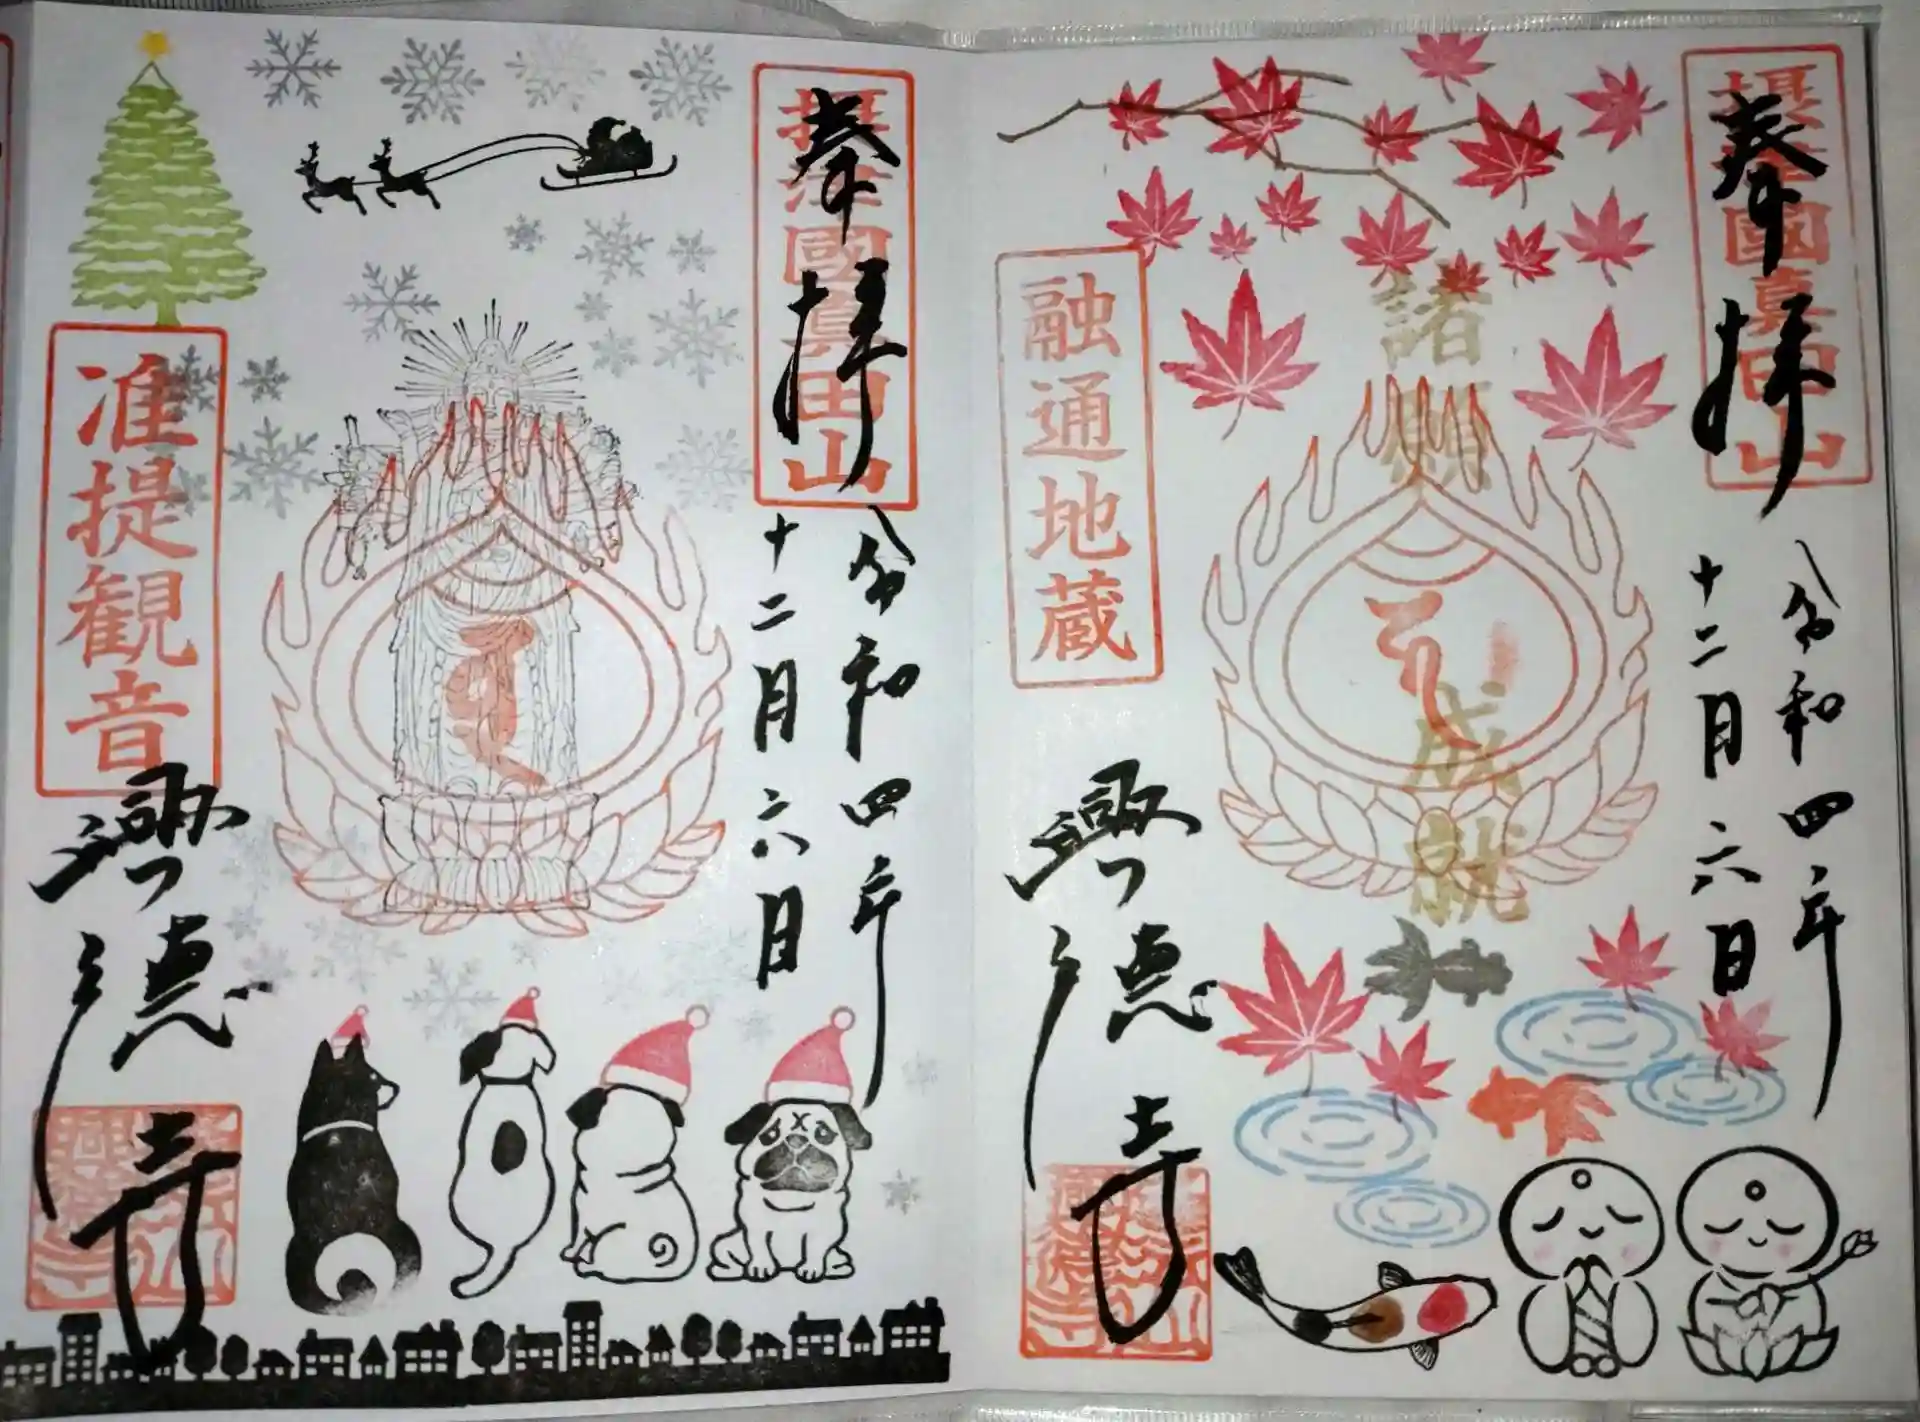 奉拝
摂津國真田山
令和四年
十二月六日
准提観音
興德寺
奉拝
摂津國真田山
令和四年
十二月六日
諸願成就
融通地蔵
興德寺